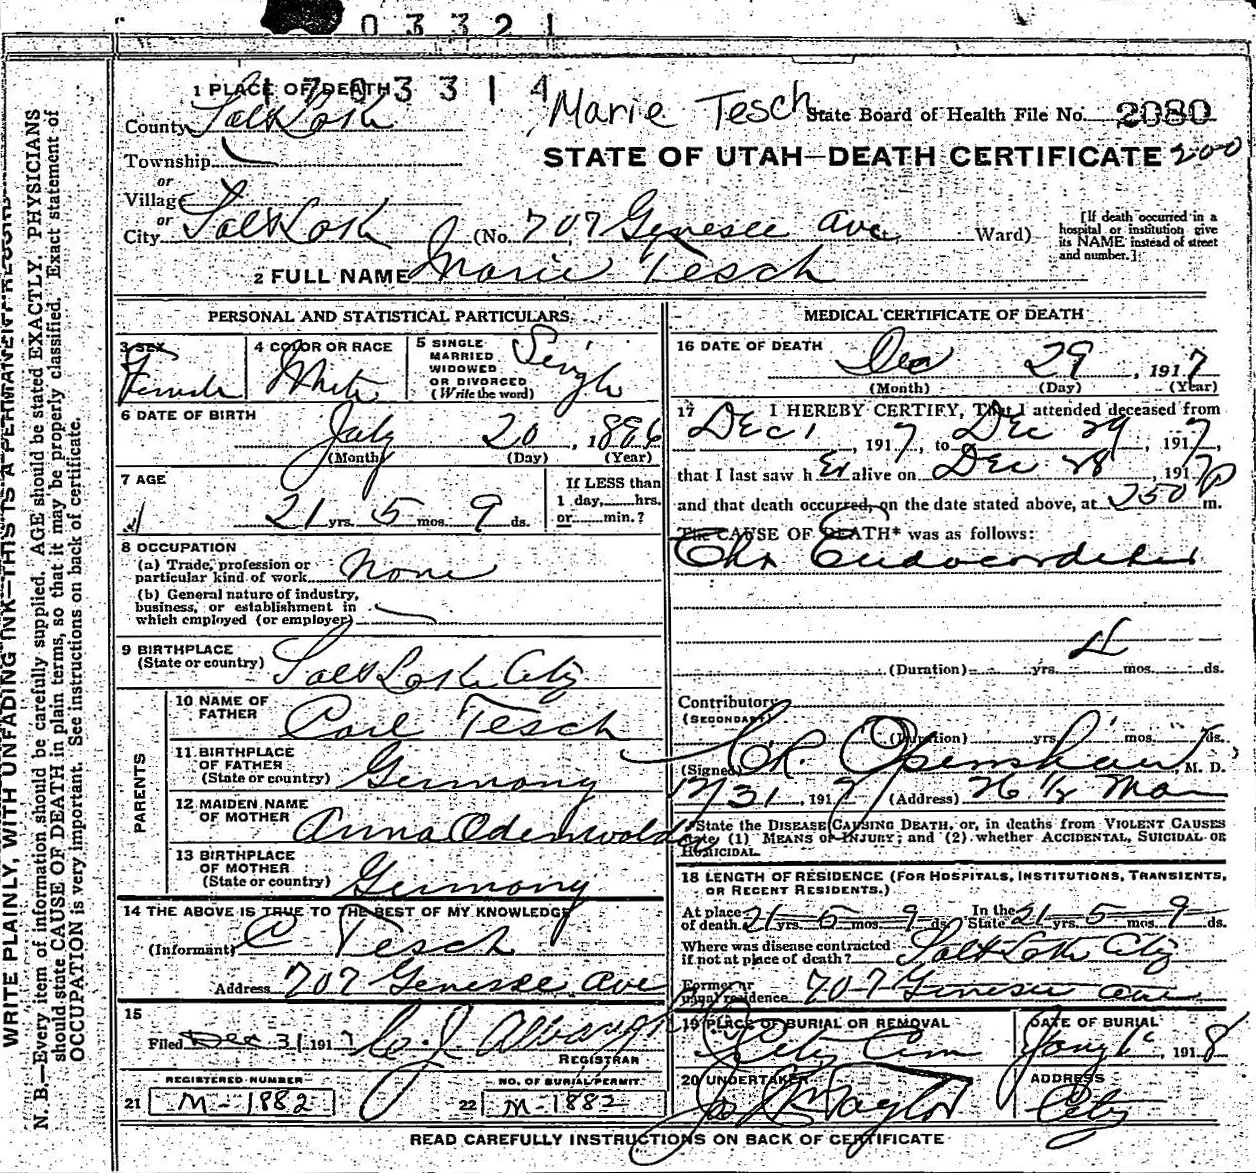 0 3 3 2 1
1 7 0 3 3 1 4
1 PLACE OF DEATH
Marie Tesch State Board of Health File No. 2080
County Salt Lake
Township
STATE OF UTAH—DEATH CERTIFICATE 200
or
Village
or
City Salt Lake (No. 707 Genesee Ave Ward)
[If death occurred in a hospital or institution give its NAME instead of street and number.]
2 FULL NAME Marie Tesch
PERSONAL AND STATISTICAL PARTICULARS
3 SEX Female
4 COLOR OR RACE White
5 SINGLE MARRIED WIDOWED OR DIVORCED (Write the word) Single
6 DATE OF BIRTH
July 20, 1896
(Month) (Day) (Year)
7 AGE
21 yrs. 5 mos. 9 ds.
If LESS than
1 day,......hrs.
or......min.?
8 OCCUPATION
(a) Trade, profession or
particular kind of work None
(b) General nature of industry,
business, or establishment in
which employed (or employer)
9 BIRTHPLACE
(State or country) Salt Lake City
PARENTS
10 NAME OF
FATHER Carl Tesch
11 BIRTHPLACE
OF FATHER
(State or country) Germany
12 MAIDEN NAME
OF MOTHER Anna Odenwalder
13 BIRTHPLACE
OF MOTHER
(State or country) Germany
14 THE ABOVE IS TRUE TO THE BEST OF MY KNOWLEDGE
(Informant) C Tesch
Address 707 Genesee Ave
15
Filed Dec 31 1917 C. J.
REGISTRAR
REGISTERED NUMBER
21 M-1882
NO. OF BURIAL PERMIT
22 M-1882
MEDICAL CERTIFICATE OF DEATH
16 DATE OF DEATH
Dec 29, 1917
(Month) (Day) (Year)
17 I HEREBY CERTIFY, That I attended deceased from
Dec 1, 1917, to Dec 29, 1917,
that I last saw h er alive on Dec 28, 1917
and that death occurred, on the date stated above, at 250 P m.
The CAUSE OF DEATH* was as follows:
Chr Endocarditis
(Duration) yrs. 4 mos. ds.
Contributory
(SECONDARY)
(Duration) yrs. mos. ds.
(Signed) C.R. Openshaw, M. D.
12/31, 1917 (Address) 26 1/2 Main
*State the DISEASE CAUSING DEATH, or, in deaths from VIOLENT CAUSES
state (1) MEANS OF INJURY; and (2) whether ACCIDENTAL, SUICIDAL OR
HOMICIDAL.
18 LENGTH OF RESIDENCE (FOR HOSPITALS, INSTITUTIONS, TRANSIENTS,
OR RECENT RESIDENTS.)
At place of death 21 yrs. 5 mos. 9 ds. In the State 21 yrs. 5 mos. 9 ds.
Where was disease contracted
if not at place of death? Salt Lake City
Former or
usual residence 707 Genesee Ave
19 PLACE OF BURIAL OR REMOVAL City Cem
DATE OF BURIAL Jany 1, 1918
20 UNDERTAKER Taylor
ADDRESS City
READ CAREFULLY INSTRUCTIONS ON BACK OF CERTIFICATE
WRITE PLAINLY, WITH UNFADING INK—THIS IS A PERMANENT RECORD
N. B.—Every item of information should be carefully supplied. AGE should be stated EXACTLY. PHYSICIANS
should state CAUSE OF DEATH in plain terms, so that it may be properly classified. Exact statement of
OCCUPATION is very important. See instructions on back of certificate.